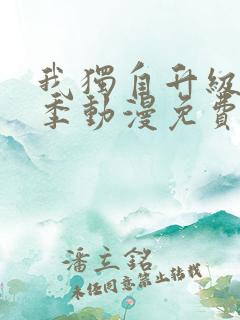 我獨自升級
季動漫免費
潘立銘
未經同意禁止轉載